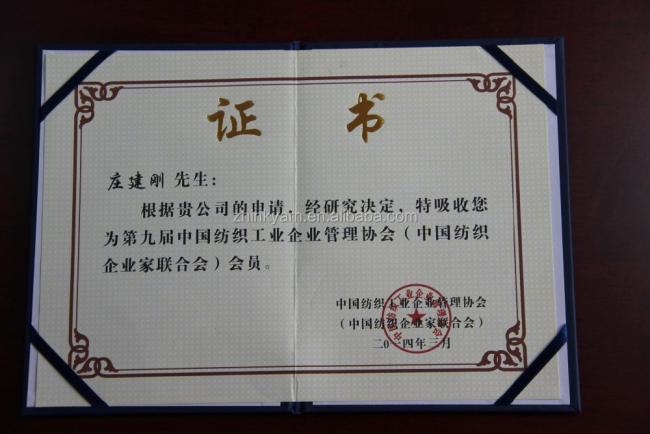 证 书
庄建刚 先生：
根据贵公司的申请，经研究决定，特吸收您
为第九届中国纺织工业企业管理协会（中国纺织
企业家联合会）会员。
中国纺织工业企业管理协会
（中国纺织企业家联合会）
二〇一四年三月
中国纺织工业企业管理协会
zhinkyarn.en.alibaba.com